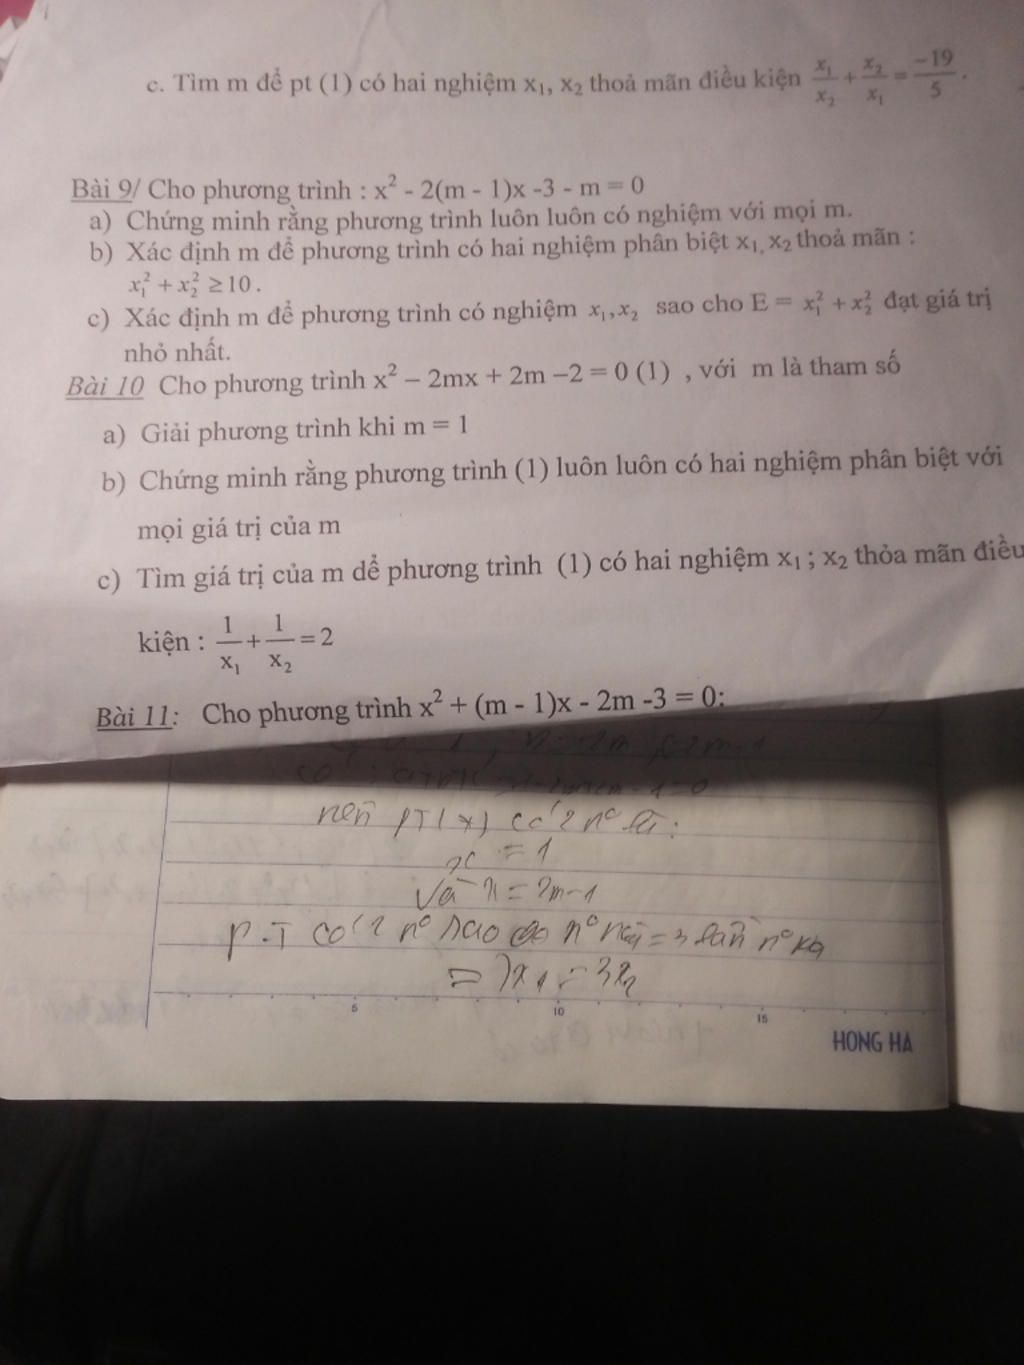 c. Tìm m để pt (1) có hai nghiệm x₁, x₂ thoả mãn điều kiện x₁/x₂ + x₂/x₁ = -19/5 .
Bài 9/ Cho phương trình : x² - 2(m - 1)x -3 - m = 0
a) Chứng minh rằng phương trình luôn luôn có nghiệm với mọi m.
b) Xác định m để phương trình có hai nghiệm phân biệt x₁, x₂ thoả mãn :
x₁² + x₂² ≥ 10 .
c) Xác định m để phương trình có nghiệm x₁, x₂ sao cho E = x₁² + x₂² đạt giá trị
nhỏ nhất.
Bài 10 Cho phương trình x² – 2mx + 2m –2 = 0 (1) , với m là tham số
a) Giải phương trình khi m = 1
b) Chứng minh rằng phương trình (1) luôn luôn có hai nghiệm phân biệt với
mọi giá trị của m
c) Tìm giá trị của m dể phương trình (1) có hai nghiệm x₁ ; x₂ thỏa mãn điều
kiện : 1/x₁ + 1/x₂ = 2
Bài 11: Cho phương trình x² + (m - 1)x - 2m -3 = 0:
nên PT(*) có 2 n° là:
x = 1
và x = 2m-1
P.T có 2 n° sao n° này = 3 lần n° kia
=> x₁ = 3x₂
5 10 15
HONG HA